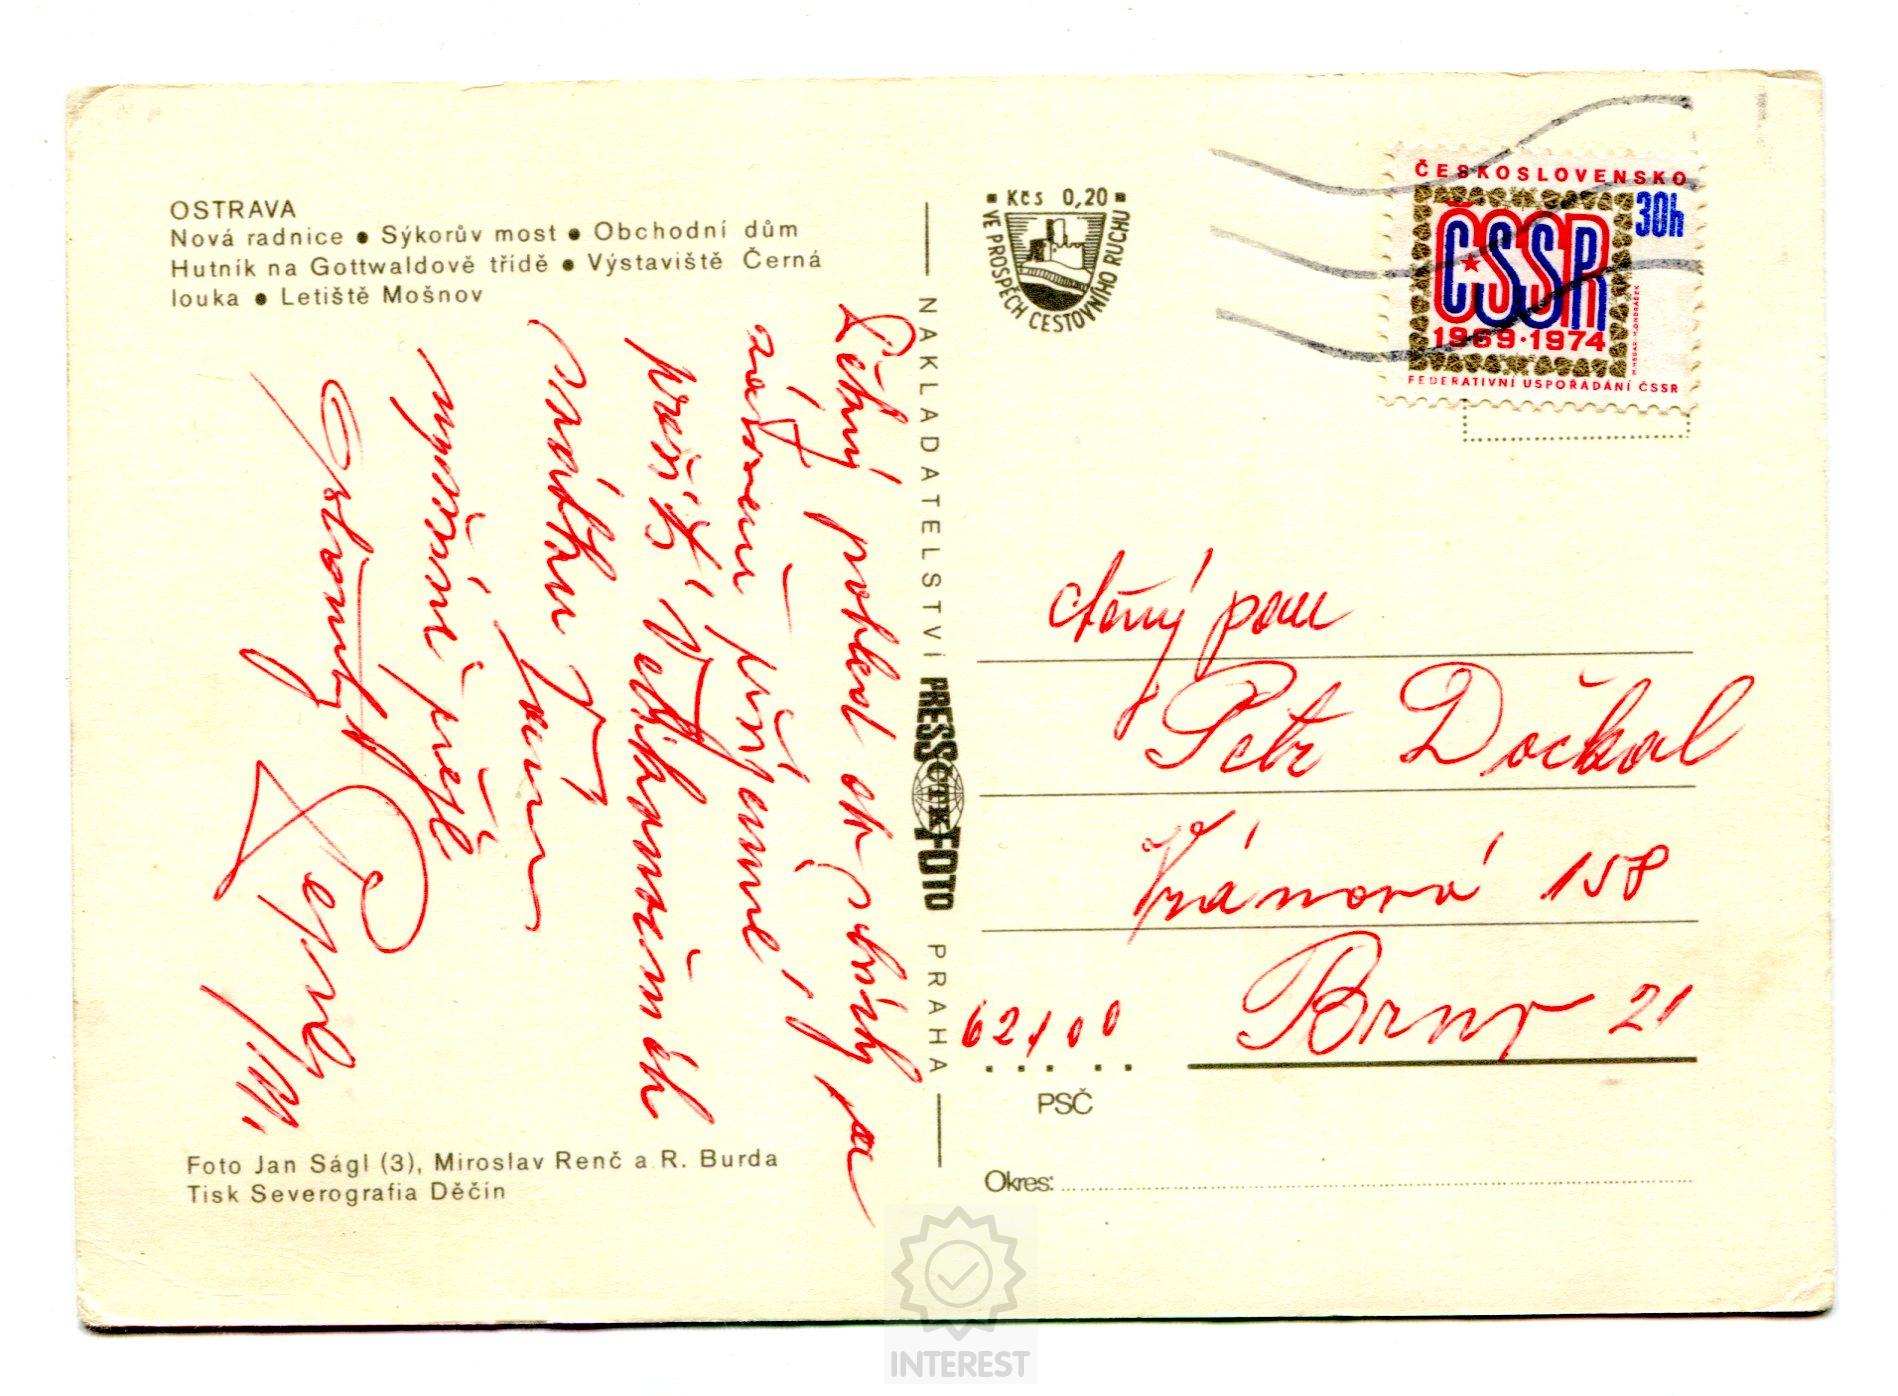 OSTRAVA
Nová radnice ● Sýkorův most ● Obchodní dům
Hutník na Gottwaldově třídě ● Výstaviště Černá
louka ● Letiště Mošnov
Pěkný pohled
zároveň příjemné
prožití Velikonočních
svátků Vám
Ostravy
Foto Jan Ságl (3), Miroslav Renč a R. Burda
Tisk Severografia Děčín
NAKLADATELSTVÍ PRESSFOTO PRAHA
ČTK
Kčs 0,20
VE PROSPĚCH CESTOVNÍHO RUCHU
ČESKOSLOVENSKO
30h
ČSSR
1969·1974
FEDERATIVNÍ USPOŘÁDÁNÍ ČSSR
ctěný pan
Petr Dočkal
Vránová 158
Brno 21
621 00
PSČ
Okres:
INTEREST